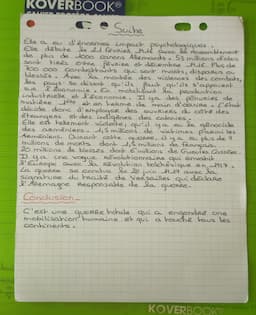 KOVERBOOK
Suite
Elle a eu d'énormes impact psychologiques.
Elle débute le 21 février 1916 avec le rassemblement
de plus de 1000 canons Allemands. 53 millions d'obus
sont tirés entre février et décembre 1916. Plus de
700 000 combattants qui sont morts, disparus ou
blessés. Avec la montée des violences des combats
les pays se disent qu'ils faut qu'ils s'appuient
sur l'économie. En mobilisant la production
industrielle et féminine. Il y a des pénuries de
matière 1ère et en termes de main d'œuvre. L'état
décide donc d'employer des ouvriers du côté des
étrangers et des indigènes des colonies.
Elle est tellement violente qu'il y a eu le génocide
des arméniens. 1,5 millions de victimes parmi les
Arméniens. Durant cette guerre il y a eu plus de 9
millions de morts dont 1,5 millions de français.
20 millions de blessés dont 6 millions de Gueules Cassées
Il y a une vague révolutionnaire qui
l'Europe avec la révolution bolchévique en 1917.
La guerre se conclue le 28 juin 1919 avec la
signature du traité de Versailles qui déclare
l'Allemagne responsable de la guerre.
Conclusion
C'est une guerre totale qui a engendré une
mobilisation humaine et qui a touché tous les
continents.
KOVERBOOK